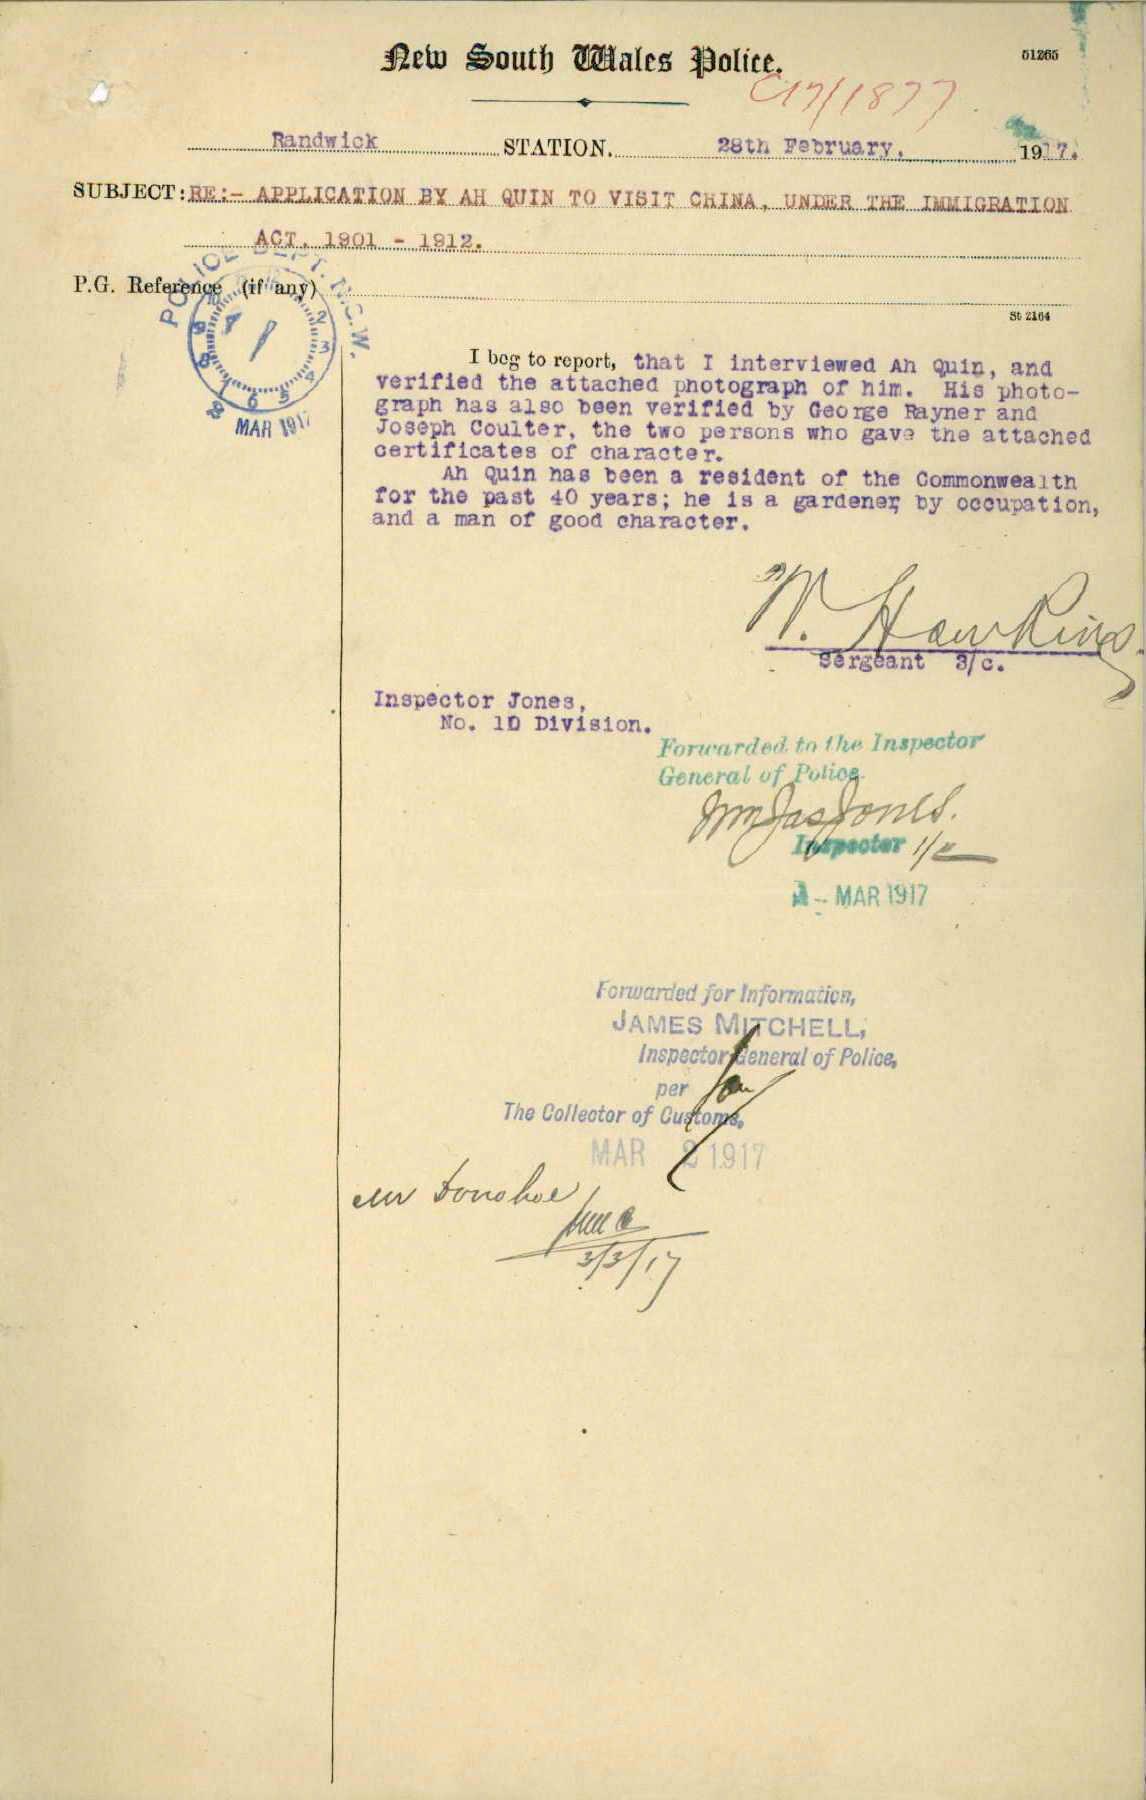 New South Wales Police.
51265
C17/1877
Randwick STATION. 28th February, 1917.
SUBJECT: RE:- APPLICATION BY AH QUIN TO VISIT CHINA, UNDER THE IMMIGRATION
ACT, 1901 - 1912.
P.G. Reference (if any)
St 2164
POLICE DEPT. N.S.W.
MAR 1917
I beg to report, that I interviewed Ah Quin, and
verified the attached photograph of him. His photo-
graph has also been verified by George Rayner and
Joseph Coulter, the two persons who gave the attached
certificates of character.
Ah Quin has been a resident of the Commonwealth
for the past 40 years; he is a gardener, by occupation,
and a man of good character.
W. Hawkins.
Sergeant 3/c.
Inspector Jones,
No. 10 Division.
Forwarded to the Inspector
General of Police.
Wm Jas Jones.
Inspector 1/c
1 - MAR 1917
Forwarded for Information,
JAMES MITCHELL,
Inspector General of Police,
per
The Collector of Customs.
MAR 2 1917
Mr Donohoe
3/3/17